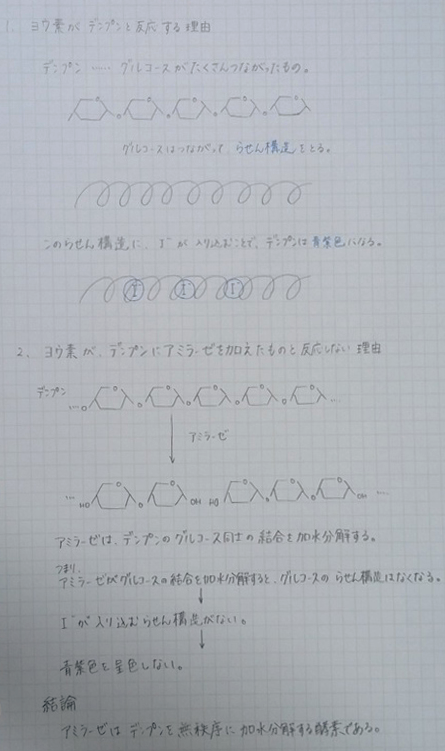 1. ヨウ素がデンプンと反応する理由
デンプン …… グルコースがたくさんつながったもの。
グルコースはつながって、らせん構造をとる。
このらせん構造に、I⁻が入り込むことで、デンプンは青紫色になる。
I I I
2. ヨウ素が、デンプンにアミラーゼを加えたものと反応しない理由
デンプン
アミラーゼ
HO OH HO OH
アミラーゼは、デンプンのグルコース同士の結合を加水分解する。
つまり、
アミラーゼがグルコースの結合を加水分解すると、グルコースのらせん構造はなくなる。
I⁻が入り込むらせん構造がない。
青紫色を呈色しない。
結論
アミラーゼはデンプンを無秩序に加水分解する酵素である。